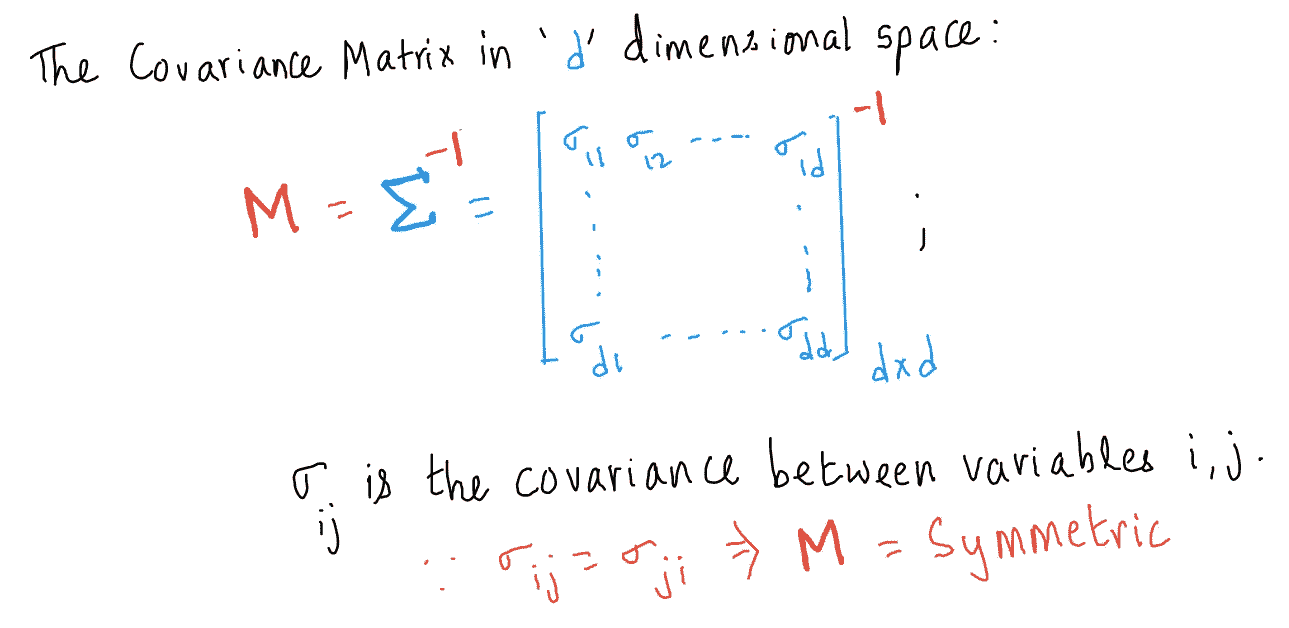 The Covariance Matrix in 'd' dimensional space:
M = Σ⁻¹ = [ σ₁₁ σ₁₂ ---- σ₁d ]⁻¹ ;
⋮ ⋮
σd₁ ------ σdd
d×d
σij is the covariance between variables i, j.
∵ σij = σji ⇒ M = Symmetric